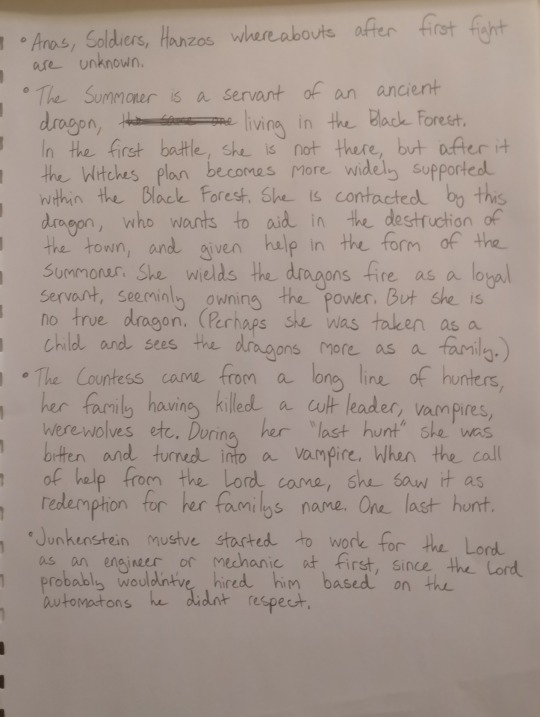 • Anas, Soldiers, Hanzos whereabouts after first fight
are unknown.
• The Summoner is a servant of an ancient
dragon, the same one living in the Black Forest.
In the first battle, she is not there, but after it
the Witches plan becomes more widely supported
within the Black Forest. She is contacted by this
dragon, who wants to aid in the destruction of
the town, and given help in the form of the
Summoner. She wields the dragons fire as a loyal
servant, seeminly owning the power. But she is
no true dragon. (Perhaps she was taken as a
child and sees the dragons more as a family.)
• The Countess came from a long line of hunters,
her family having killed a cult leader, vampires,
werewolves etc. During her "last hunt" she was
bitten and turned into a vampire. When the call
of help from the Lord came, she saw it as
redemption for her familys name. One last hunt.
• Junkenstein mustve started to work for the Lord
as an engineer or mechanic at first, since the Lord
probably wouldnt've hired him based on the
automatons he didnt respect.